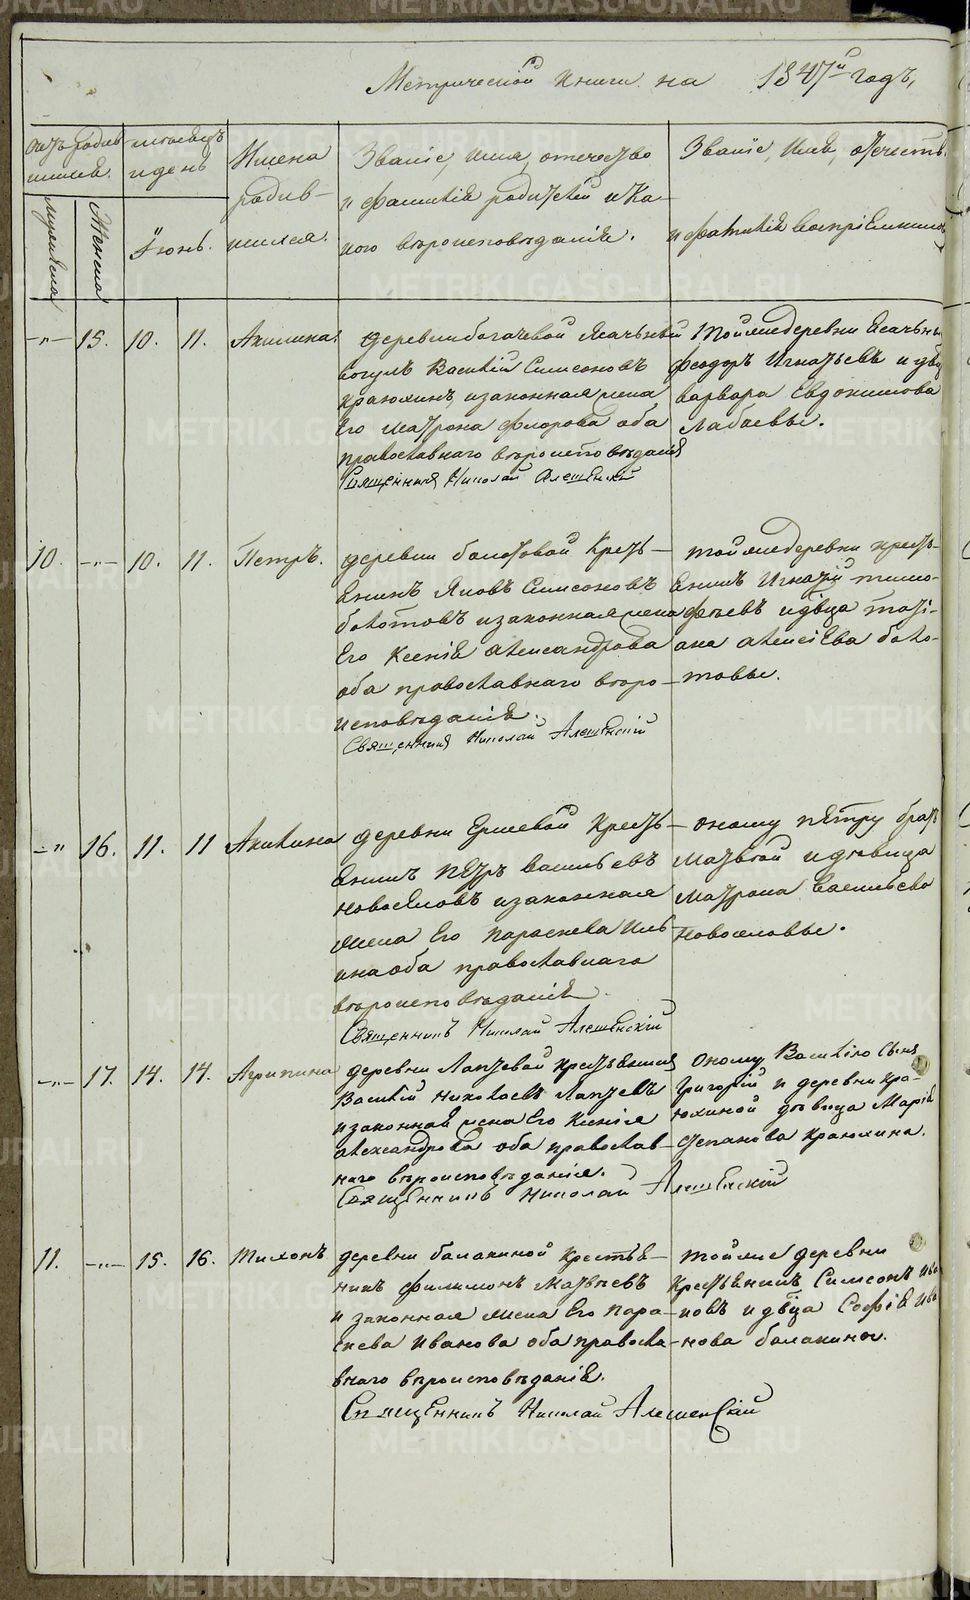 Метрической книги на 1847й годъ,
Счетъ родив
шихся.
мужеска
Женска
месяцъ
и день
Iюнь.
Имена
родив-
шихся.
Званiе, имя, отечество
и фамилiя родителей и ка
кого вероисповеданiя.
Званiе, Имя, отечеств.
и фамилiя воспрiемников
-"- 15. 10. 11. Акилина.
деревни богачевой Ясачный
вогулъ Василiй Симеоновъ
краюхинъ, и законная жена
Его матрона флорова оба
православнаго вероисповеданiя
Священникъ Николай Алешенскiй
Той же деревни Ясачны
феодоръ Игнатьевъ и двц
варвара Евдокимова
лабаевы.
10. -"- 10. 11. Петръ.
деревни болотовой Кресть-
янинъ Яковъ Симеоновъ
болотовъ и законная жена
Его Ксенiя александрова
оба православнаго веро-
исповеданiя.
Священникъ Николай Алешенскiй
той же деревни кресть-
янинъ Игнатiй тимо-
феевъ и двца татi-
ана алексiева боло-
товы.
-"- 16. 11. 11 Акилина
деревни Ершевой Кресть-
янинъ Петръ васильевъ
новоселовъ и законная
жена Его параскева Иль
ина оба православнаго
вероисповеданiя.
Священникъ Николай Алешенскiй
оному петру братъ
матвей и девица
матрона васильева
новоселовы.
-"- 17. 14. 14. Агрипина
деревни Лаптевой крестьянинъ
Василiй Николаевъ Лаптевъ
и законная жена Его Ксенiя
александрова оба православ-
наго вероисповеданiя.
Священникъ Николай Алешенскiй
Оному Василiю Сынъ
григорiй и деревни кра-
юхиной девица Марiя
степанова краюхина.
11. -"- 15. 16. Тихонъ
деревни балакиной крестья-
нинъ филимонъ матвеевъ
и законная жена Его Пара-
скева иванова оба правосла-
внаго вероисповеданiя.
Священникъ Николай Алешенскiй
той же деревни
крестьянинъ Симеонъ ива
новъ и двица Софiя ива
нова балакины.
METRIKI.GASO-URAL.RU